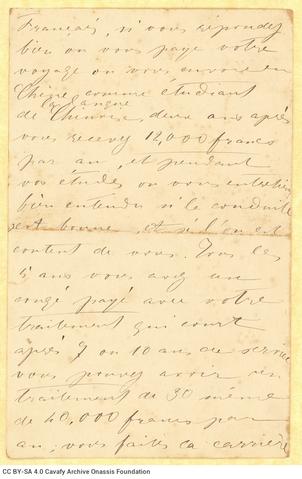 Français, si vous répondez
bien on vous paye votre
voyage on vous envoie en
Chine comme étudiant
la langue
de Chinoise, deux ans après
vous recevez 12,000 francs
par an, et pendant
vos études on vous entretien
bien entendu si la conduite
est bonne, et si l'on est
content de vous. Tous les
5 ans vous avez un
congé payé avec votre
traitement qui court
après 7 ou 10 ans de service
vous pouvez avoir un
traitement de 30 même
de 40,000 francs par
an, vous faites la carrière
CC BY-SA 4.0 Cavafy Archive Onassis Foundation